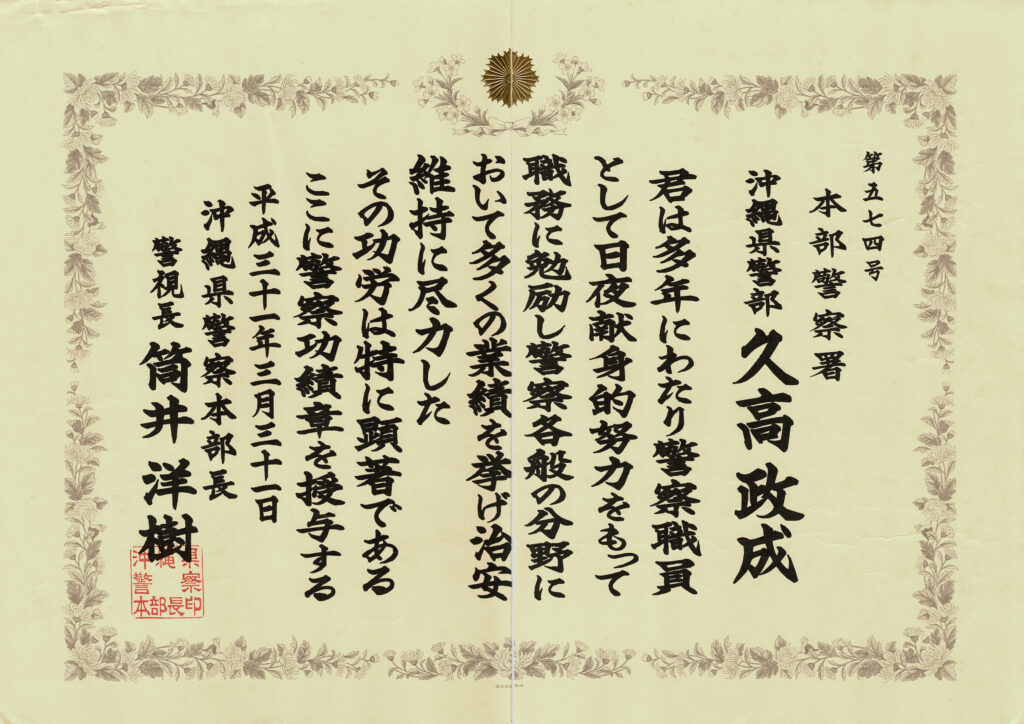 第五七四号
本部警察署
沖縄県警部 久高政成
君は多年にわたり警察職員
として日夜献身的努力をもって
職務に勉励し警察各般の分野に
おいて多くの業績を挙げ治安
維持に尽力した
その功労は特に顕著である
ここに警察功績章を授与する
平成三十一年三月三十一日
沖縄県警察本部長
警視長 筒井洋樹
沖縄県警察本部長印